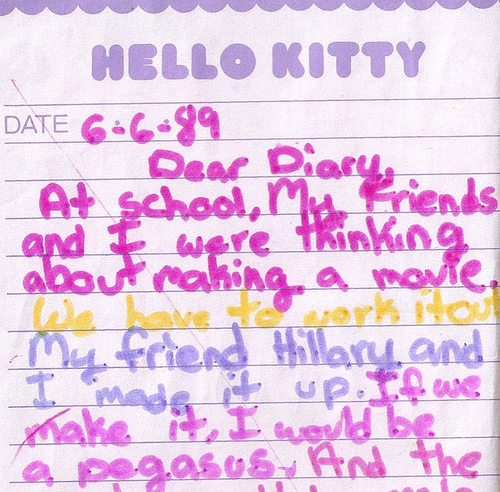 HELLO KITTY
DATE 6-6-89
Dear Diary,
At school, My friends
and I were thinking
about making a movie.
We have to work it out
My friend Hillary and
I made it up. If we
make it, I would be
a pegasus. And the